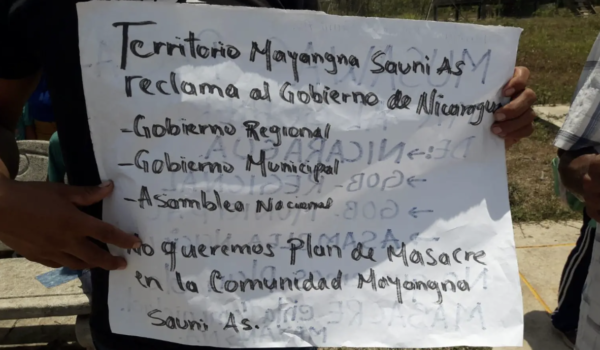 Territorio Mayangna Sauni As
reclama al Gobierno de Nicaragua
-Gobierno Regional
-Gobierno Municipal
-Asamblea Nacional
No queremos Plan de Masacre
en la Comunidad Mayangna
Sauni As.